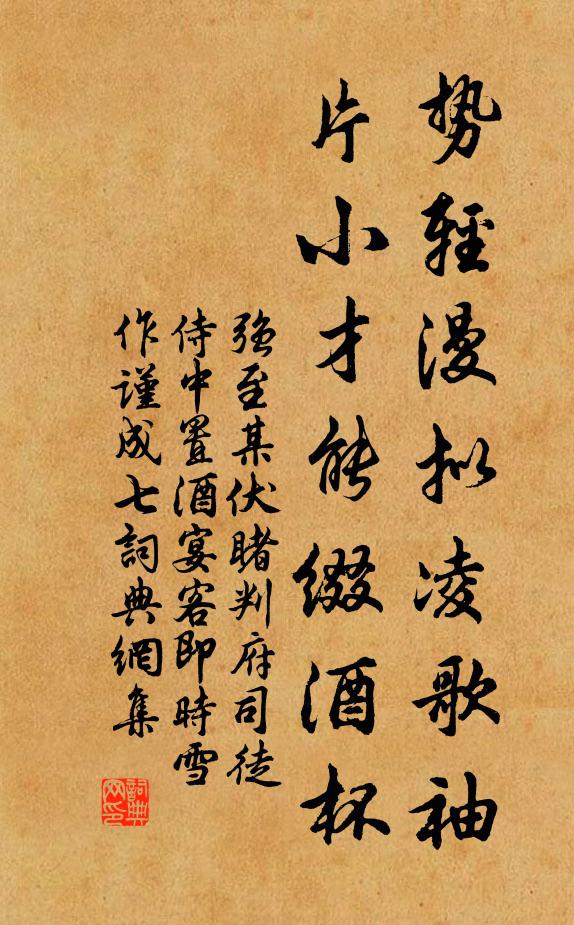 势轻漫拟凌歌袖
片小才能缀酒杯
强至某伏睹判府司徒
侍中置酒宴客即時雪
作謹成七詞典網集
詞典
网印